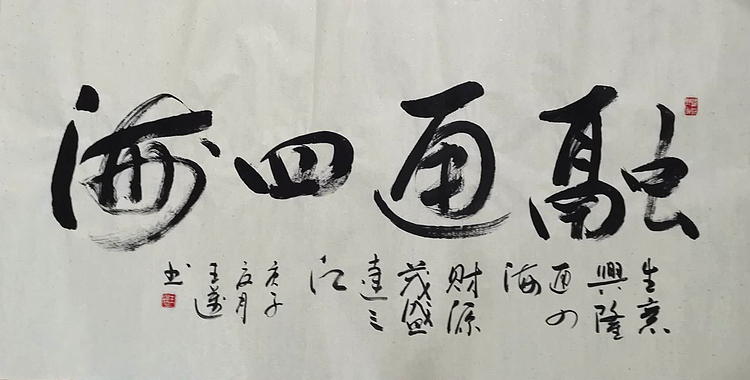 融通四海
生意
興隆
通四
海
財源
茂盛
達三
江
庚子
夏月
王
书